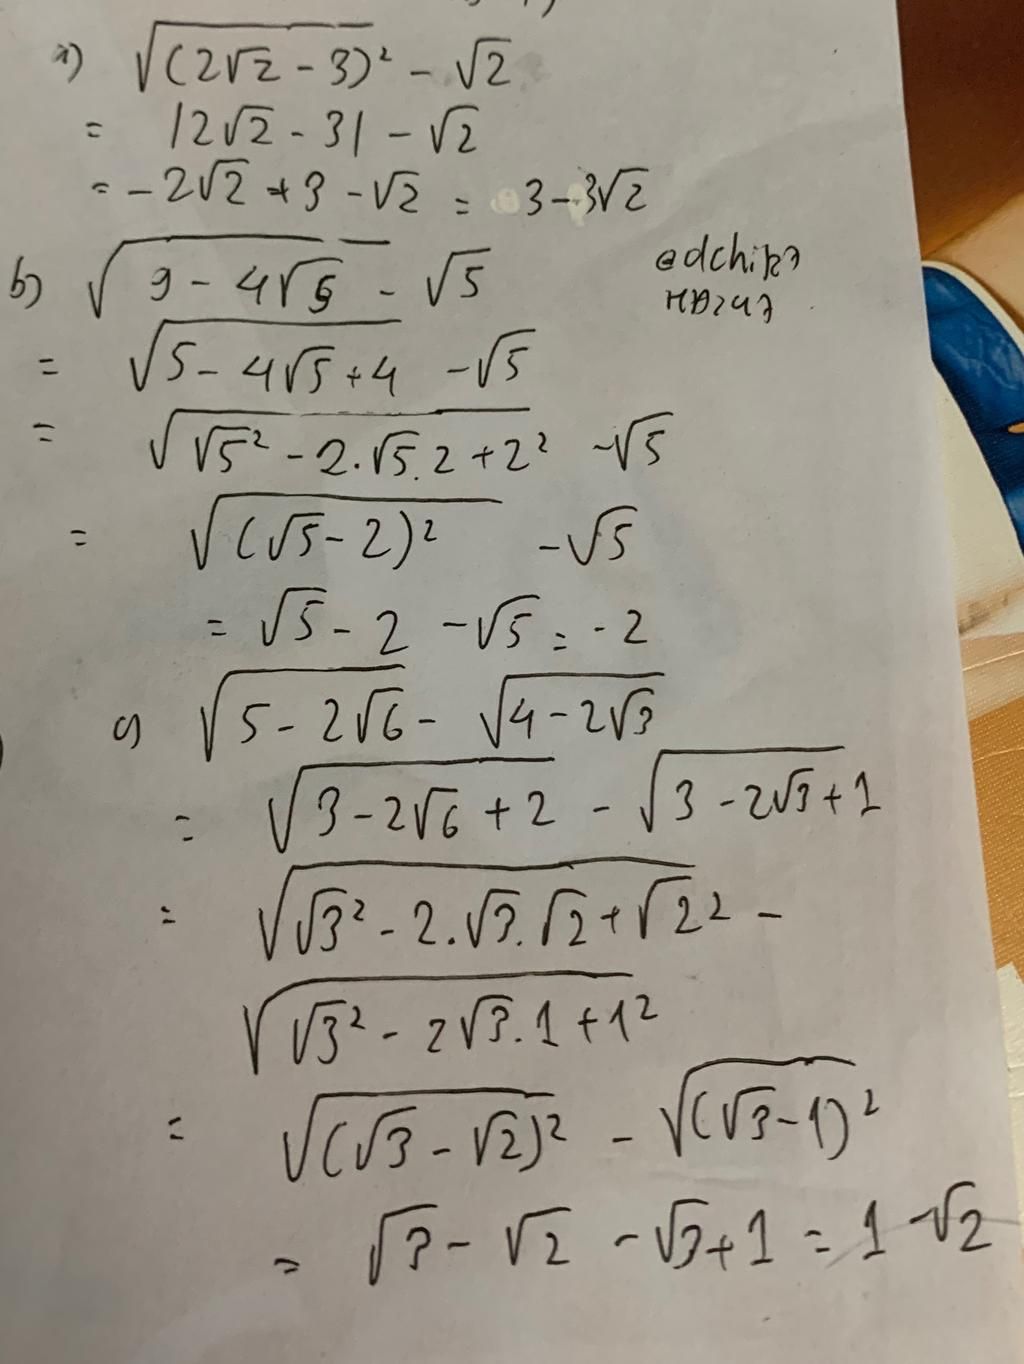 a) √(2√2 - 3)² - √2
= |2√2 - 3| - √2
= -2√2 + 3 - √2 = 3 - 3√2
b) √9 - 4√5 - √5
@dchip7
= √5 - 4√5 + 4 - √5
= √√5² - 2.√5.2 + 2² - √5
= √(√5 - 2)² - √5
= √5 - 2 - √5 = -2
c) √5 - 2√6 - √4 - 2√3
= √3 - 2√6 + 2 - √3 - 2√3 + 1
= √√3² - 2.√3.√2 + √2² -
√√3² - 2√3.1 + 1²
= √(√3 - √2)² - √(√3 - 1)²
= √3 - √2 - √3 + 1 = 1 - √2